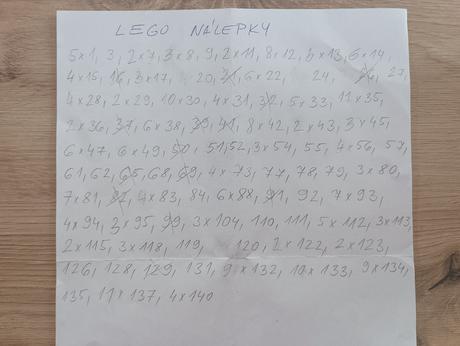 LEGO NÁLEPKY
5×1, 3, 2×7, 3×8, 9, 2×11, 8×12, 6×13, 6×14,
4×15, 16, 3×17, 20, 21, 6×22, 24, 27,
4×28, 2×29, 10×30, 4×31, 32, 5×33, 11×35,
2×36, 37, 6×38, 39, 41, 8×42, 2×43, 3×45,
6×47, 6×49, 50, 51, 52, 3×54, 55, 4×56, 57,
61, 62, 65, 68, 69, 4×73, 77, 78, 79, 3×80,
7×81, 82, 4×83, 84, 6×88, 91, 92, 7×93,
4×94, 2×95, 99, 3×104, 110, 111, 5×112, 3×113,
2×115, 3×118, 119, 120, 2×122, 2×123,
126, 128, 129, 131, 9×132, 10×133, 9×134,
135, 11×137, 4×140